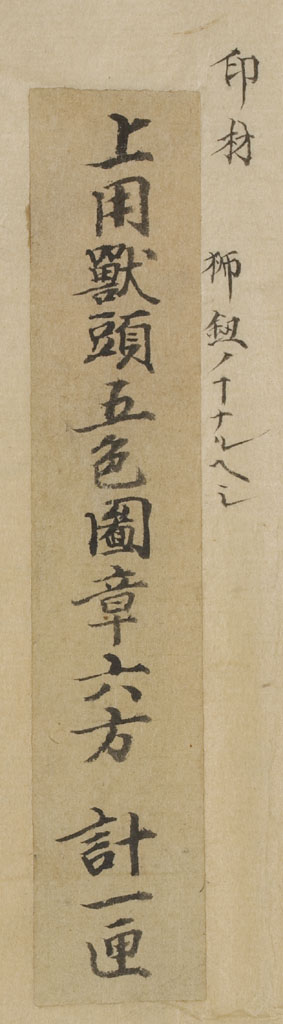 印材　獅鈕ノコナルヘシ
上用獸頭五色圖章六方　計一匣